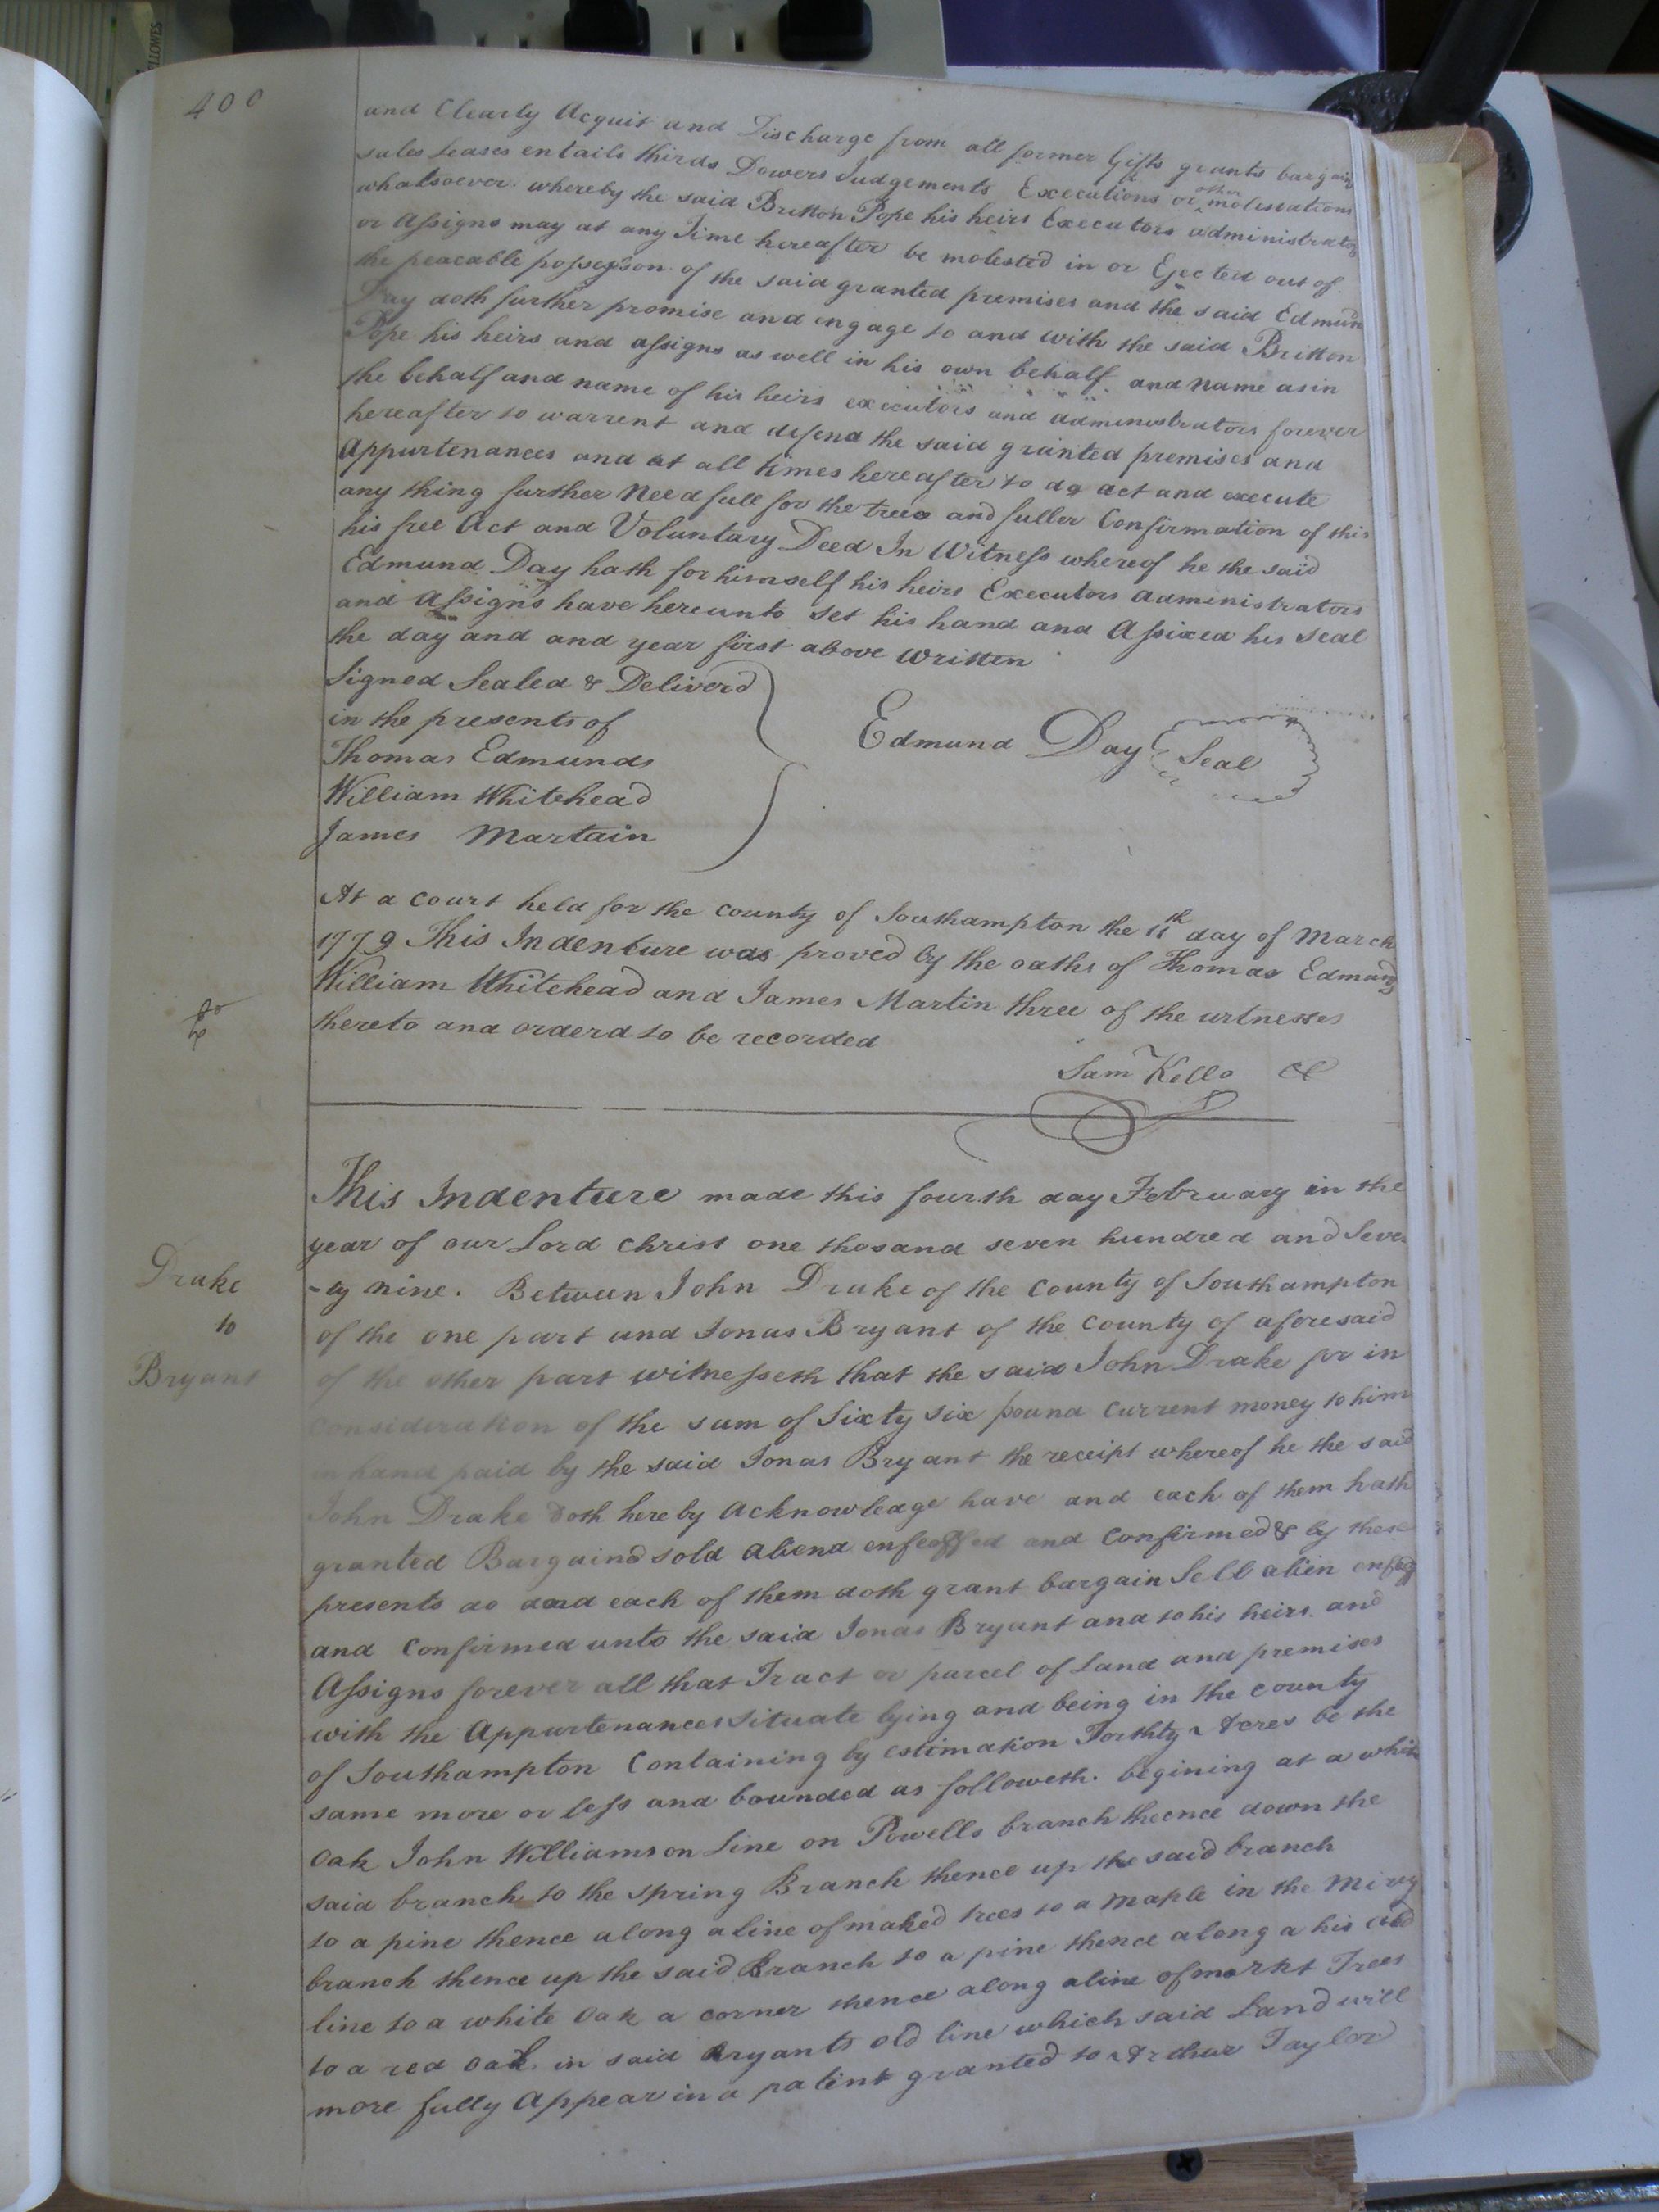 400
and Clearly Acquit and Discharge from all former Gifts grants bargain
sales Leases entails thirds Dowers Judgements Executions or other molestations
whatsoever whereby the said Britton Pope his heirs Executors administrators
or Assigns may at any Time hereafter be molested in or Ejected out of
the peacable possession of the said granted premises and the said Edmun
Day doth further promise and engage to and with the said Britton
Pope his heirs and assigns as well in his own behalf and name as in
the behalf and name of his heirs executors and administrators forever
hereafter to warrent and defend the said granted premises and
Appurtenances and at all times hereafter to do act and execute
any thing further Needfull for the trees and fuller Confirmation of this
his free Act and Voluntary Deed In Witness whereof he the said
Edmund Day hath for himself his heirs Executors administrators
and Assigns have hereunto set his hand and Affixed his seal
the day and and year first above written
Signed Sealed & Deliverd
in the presents of
Thomas Edmunds
William Whitehead
James Martain
Edmund Day Seal
At a Court held for the County of Southampton the 11th day of March
1779 This Indenture was proved by the oaths of Thomas Edmunds
William Whitehead and James Martin three of the witnesses
thereto and orderd to be recorded
Sam Kello CC
This Indenture made this fourth day February in the
year of our Lord Christ one thosand seven hundred and Seven
Drake
to
Bryant
-ty nine. Between John Drake of the County of Southampton
of the one part and Jonas Bryant of the County of aforesaid
of the other part witnesseth that the said John Drake for in
consideration of the sum of Sixty six pound Current money to him
in hand paid by the said Jonas Bryant the receipt whereof he the said
John Drake Doth hereby acknowledge have and each of them hath
granted Bargaind sold aliend enfeoffed and Confirmed & by these
presents do and each of them doth grant bargain Sell alien enfeoff
and Confirmed unto the said Jonas Bryant and to his heirs and
Assigns forever all that Tract or parcel of Land and premises
with the Appurtenances Situate lying and being in the County
of Southampton Containing by estimation Forthty Acres be the
same more or less and bounded as followeth. begining at a white
Oak John Williamson Line on Powells branch thence down the
said branch to the spring Branch thence up the said branch
to a pine thence along a line of maked trees to a maple in the Miry
branch thence up the said Branch to a pine thence along a his old
line to a white Oak a corner thence along a line of markt Trees
to a red oak in said Bryants old line which said Land will
more fully Appear in a patent granted to Arthur Taylor